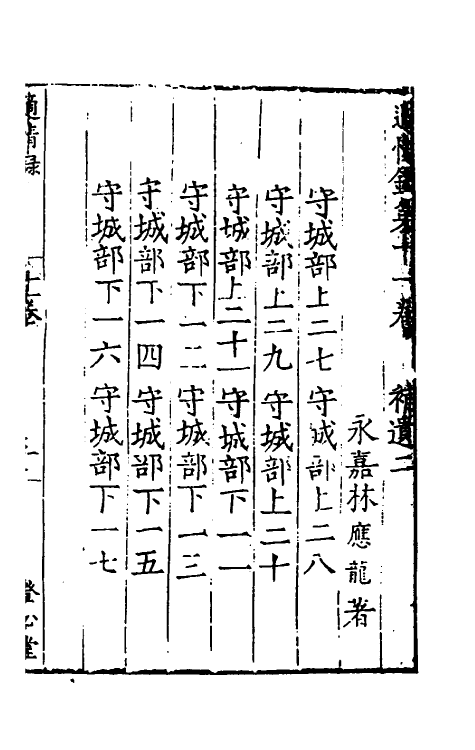 適情錄第十一卷 補遺二
永嘉林應龍著
守城部上二七 守城部上二八
守城部上二九 守城部上二十
守城部上二十一 守城部下一一
守城部下一二 守城部下一三
守城部下一四 守城部下一五
守城部下一六 守城部下一七
適情録 十一卷 澄心堂